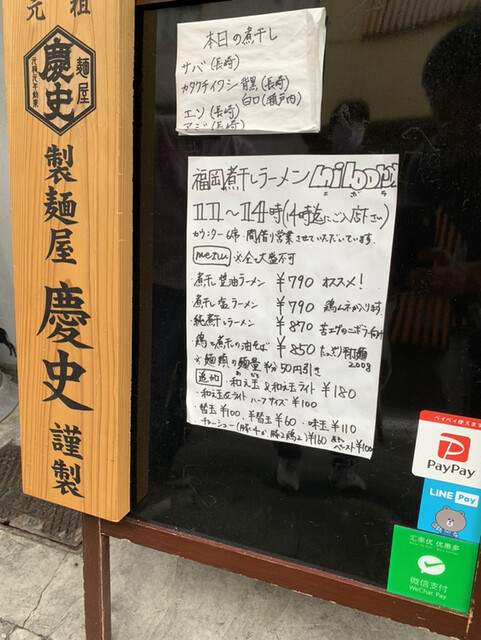 元祖
麺屋
慶史
製麺屋
慶史
謹製
本日の煮干し
サバ(長崎)
カタクチイワシ 背黒(長崎)
白口(瀬戸内)
エソ(長崎)
アジ(長崎)
福岡煮干しラーメン nibora
ニボラ
11~14時(14時迄にご入店下さい)
カウンター6席 間借り営業させていただいています.
menu ※全て大盛不可
・煮干し醤油ラーメン ¥790 オススメ!
・煮干し塩ラーメン ¥790 鶏ムネが入ります
・純煮干しラーメン ¥870 苦エグのニボラー向け
・鶏と煮干の油そば ¥850 たっぷり
200g
※麺類の麺量 半分 50円引き
追加 ・和え玉 &和え玉ライト ¥180
・和え玉&ライト ハーフサイズ ¥100
・替玉 ¥100 半替玉 ¥60 ・味玉 ¥110
チャーシュー(豚チョイ 豚2鶏2)¥160 ペースト¥100
ペイペイ使えます
PayPay
LINE Pay
汇率优 优惠多
微信支付
WeChat Pay